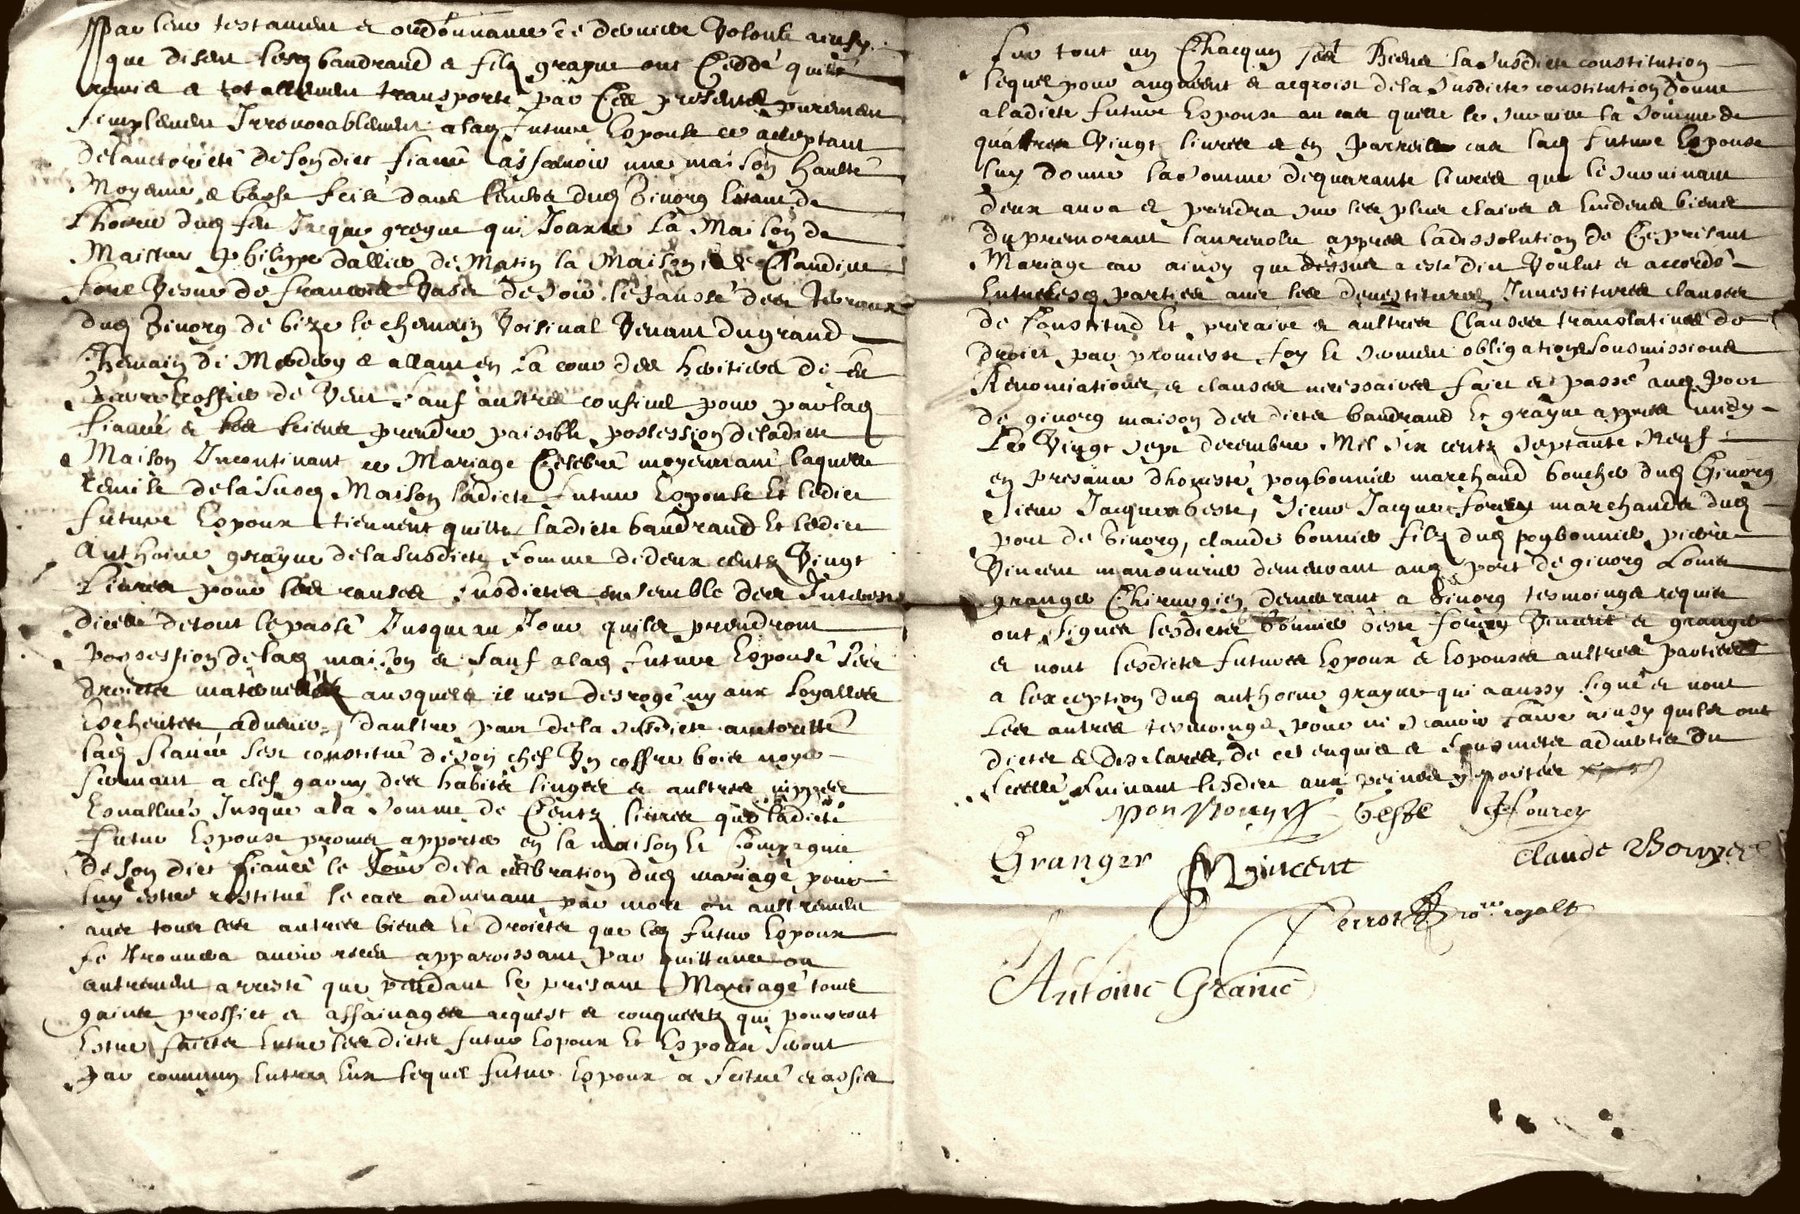 Par leur testament et ordonnance de derniere Volonté ainsy
que disent lesq baudrand et filz grayne ont Ceddé quitté
remis et totallement transporté par Ces presentes purement
simplement Irrevocablement a lad future Espouse ce acceptant
de lauctorité de son dict fiancé assavoir une maison haulte
Moyenne et basse size dans dud Givorg
dud feu Jacques grayne qui Jouxte La Maison de
Maistre Philippe dallier de Matin la Maison de Claudine
Vesve de francois de soir le fausse des
dud Givorg de bize le chemin Voisinal Venant du grand
Chemain di et allant en La cour des heritiers de
de Vent Sauf aultres confins pour par lad
fiancée et les siens prendre paisible possession de ladicte
Maison Incontinant ce Mariage Celebré moyennant laquelle
remise de la susd Maison ladicte future Espouse et ledict
future Espoux tiennent quitte ladicte baudrand Et ledict
Anthoine grayne de la susdicte somme de deux centz Vingt
Livres pour les causes susdictes ensemble des
de tout le passé Jusque au Jour quils prendront
Possession de lad maison et sauf a lad future Espouse ses
droicts maternels ausquels il nest desrogé ny aux Loyalles
Escheutes advenir daultre part de la susdicte auctoritté
lad fiancée sest constitué de son chef Un coffre bois noyer
fermant a clef garny des habits linges et aultres nippes
Esvallués Jusque a la somme de Centz livres que ladicte
future Espouse promet apporter en la maison et Compagnie
de son dict fiancé le Jour de la celebration dud mariage pour
luy estre restitué le cas advenant par mort ou aultrement
avec tous les autres biens et droicts que led futur Espoux
se trouvera avoir receu apparoissant Par quittance ou
autrement arresté que pendant le presant Mariage tous
gains proffict et affainages acquest et conquestz qui pourront
Estre faicts Entre lesdicts futur Espoux Et Espouse seront
Par commun Entre Eux lequel futur Espoux a scitué et assis
Sur tout un Chacquns ses Biens la susdicte constitution
lequel pour augment et acqroist de la susdicte constitution donne
a ladicte future Espouse au cas quelle le survive la somme de
quattre Vingt livres et en Pareille cas lad future Espouse
luy donne la somme de quarante livres que le survivant
deux aura et prendra sur les plus clairs et Evidens biens
du premourant lauremolu appres la dissolution de Ce presant
Mariage car ainsy que dessus a esté dict Voulut et accordé
Entre lesd parties avec les devestitures Investitures clauses
de Constitud Et precaire et aultres Clauses translatives de
droict par promesse foy et serment obligations sousmissions
Renonciations et clauses necessaires faict et passé aud Port
de givorg maison des dicts baudrand Et grayne appres midy
Le Vingt sept decembre Mil six centz septante Neuf
en presance dhoneste ponbonnier marchand boucher dud Givorg
sieur Jacques beste, sieur Jacques fourey marchands dud
port de Givorg, claude bonnier filz dud ponbonnier pierre
Vincent manouvrier demeurant aud port de givorg Louis
granger Chirurgien demeurant a Givorg tesmoings requis
ont signes lesdicts bonnier beste fourey Vincent et granger
et nont lesdicts futures Espoux et Espouses aultres parties
a lexception dud anthoine grayne qui a aussy signé et nont
Les autres tesmoings pour ne sçavoir faire ainsy quils ont
dicts et desclares de ce enquis et sousmetz advertis du
scellé suivant ledict aux peines y portées
pon Bonyer beste J fourey
Granger P Vincent Claude Bonyer
Perrot no.re royalt
Antoine Graine